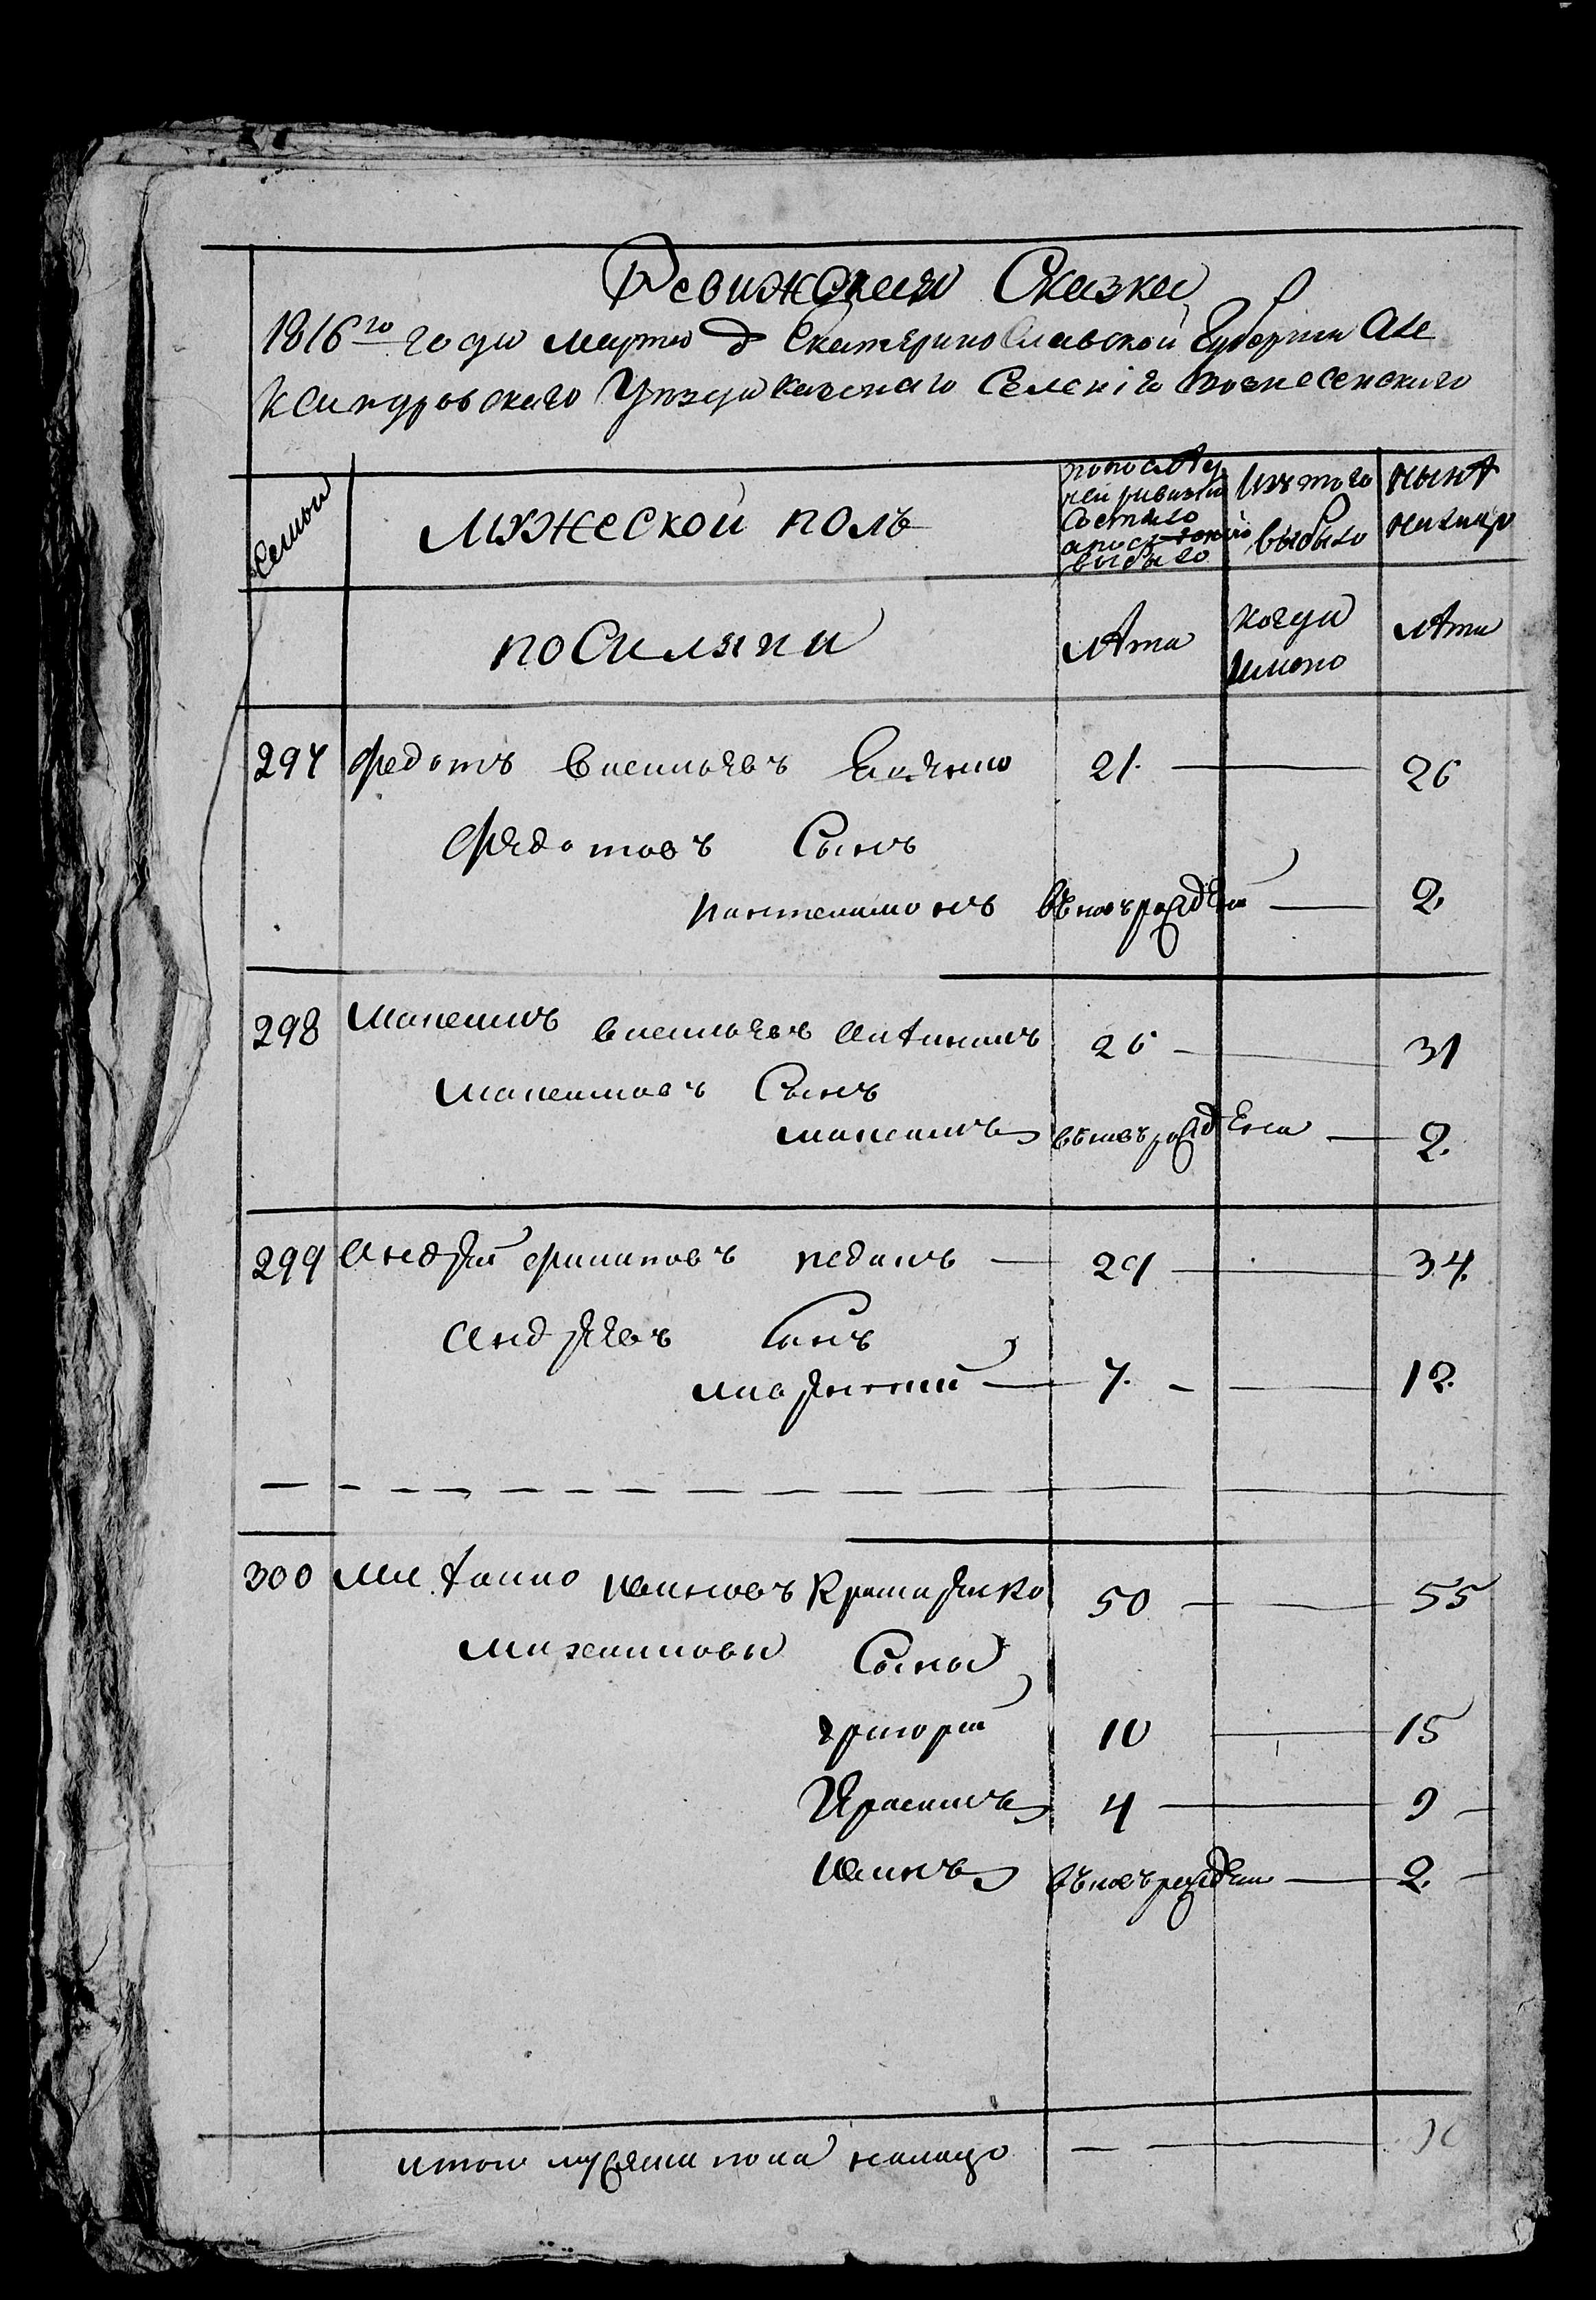 Ревижская Сказка
1816го года марта д Екатеринославской Губернии Але
ксандровского Уезда казенного Селения Вознесенского
Семьи
мужеской полъ
попослѣд
ней ривизіи
состояло
выбыло
Изъ того
выбыло
нынѣ
на лицо
поселяни
лѣта
когда
имено
лѣта
297 Федотъ Васильевъ 21. 26
Федотовъ Сынъ
Пантелимонъ въновърожденъ 2.
298 Максимъ Васильевъ 26 31
Максимовъ Сынъ
максимъ въновърождена 2.
299 Андрей Филиповъ 29 34.
Андреевъ Сынъ
лаврентий 7. 12.
300 Михайло Ивановъ Крамаренко 50 55
Михаиловы Сыны
григорий 10 15
Герасимъ 4 9
Иванъ въновърожденъ 2.
итого мужеска пола налицо